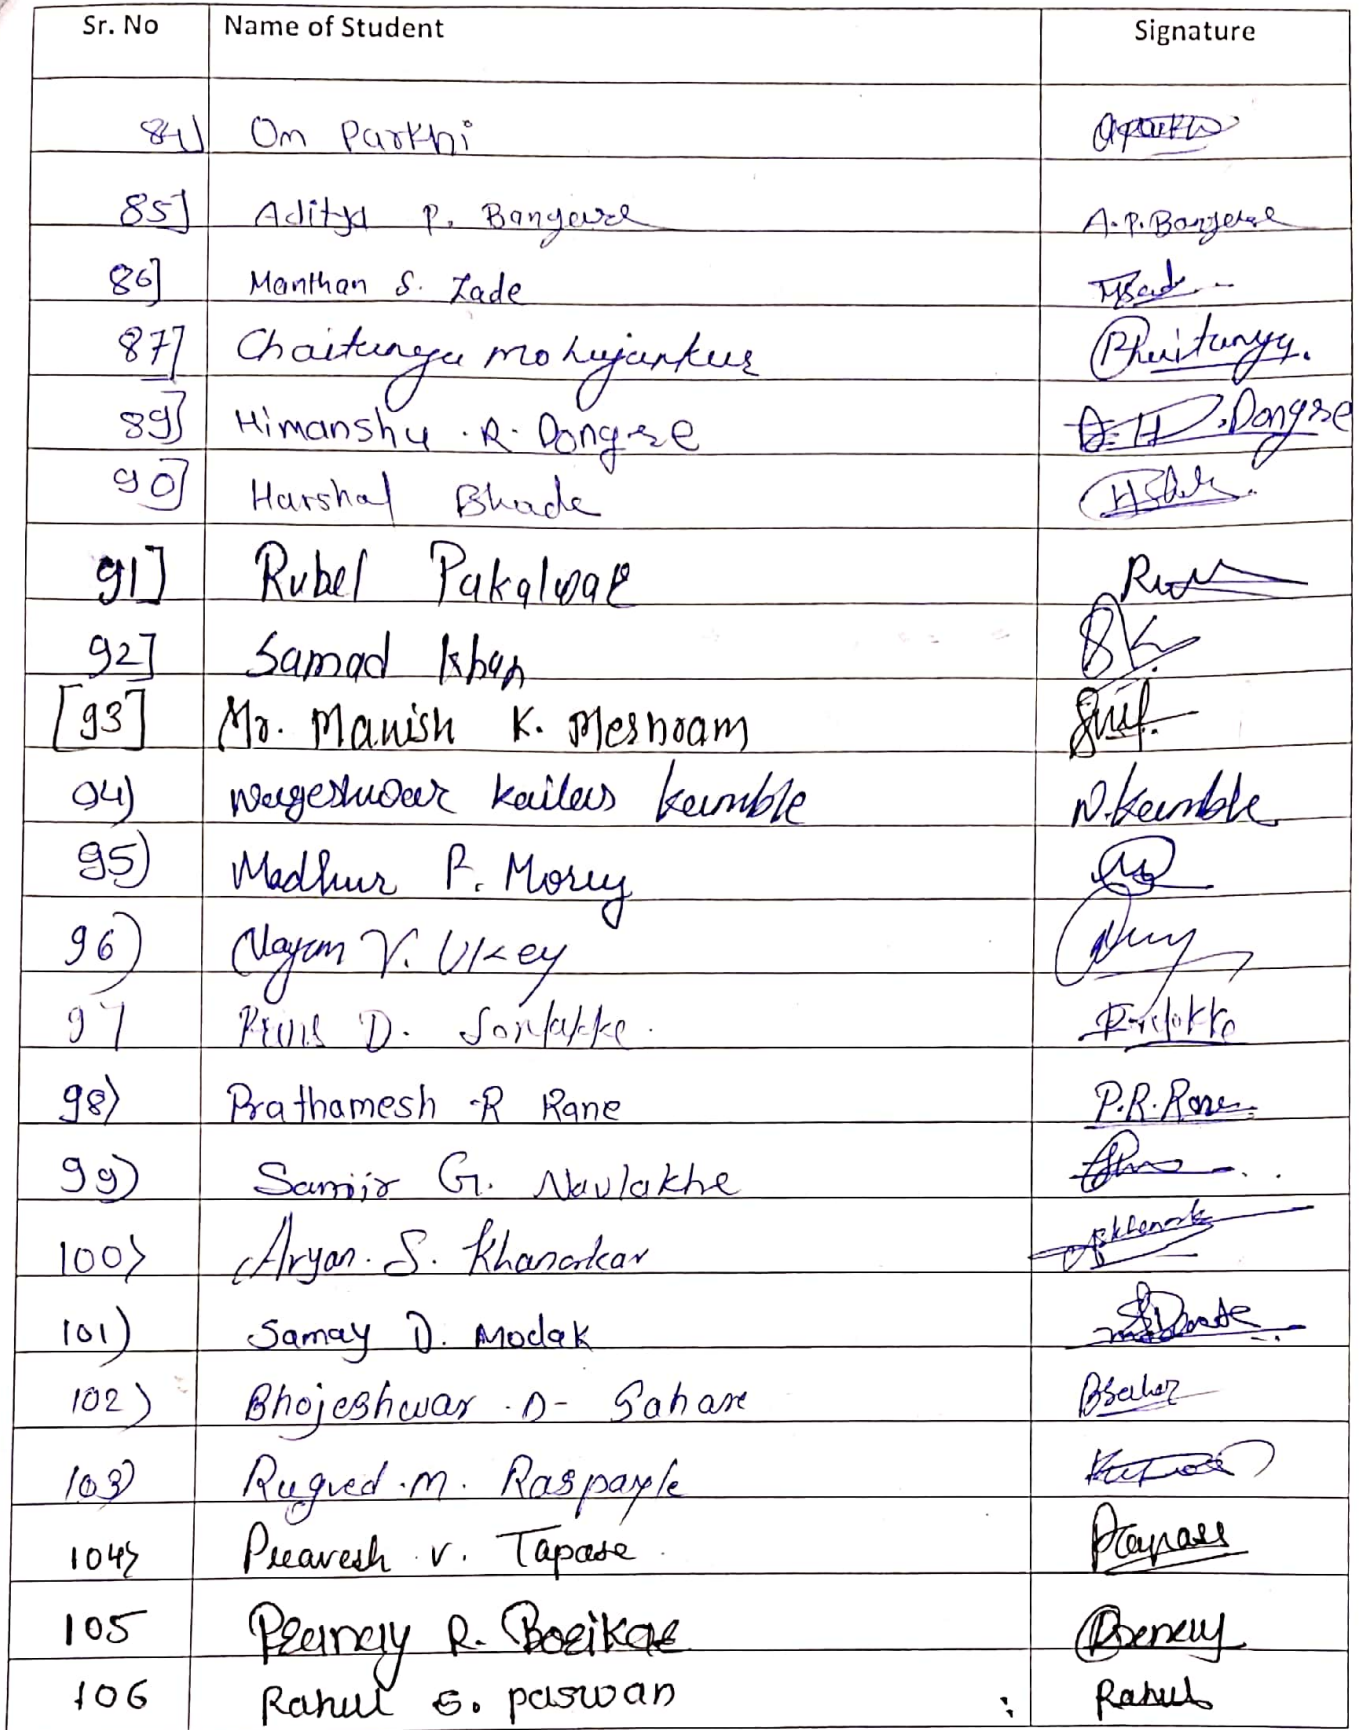 Sr. No Name of Student Signature
84) Om Parkhi
85] Aditya P. Bangare A.P.Bangare
86] Manthan S. Zade
87] Chaitanya Mohujankur Chaitanya.
89] Himanshu .R. Dongre Dongre
90] Harshal Bhade
91] Rubel Pakalwar
92] Samad Khan SK
[93] Mr. Manish K. Meshram
94) Wageshwar kailas kamble N.kamble
95) Madhur P. Morey
96) Nayan V. Ukey
97 D. Sonta
98) Prathamesh R Rane P.R.Rane
99) Samir G. Navlakhe
100) Aryan. S. Khanorkar
101) Samay D. Modak
102) Bhojeshwar .D- Sahare BSahar
103) Rugved .M. Raspayle
104) Pravesh V. Tapase
105 Pranay R. Borikar Pranay
106 Rahul S. paswan Rahul